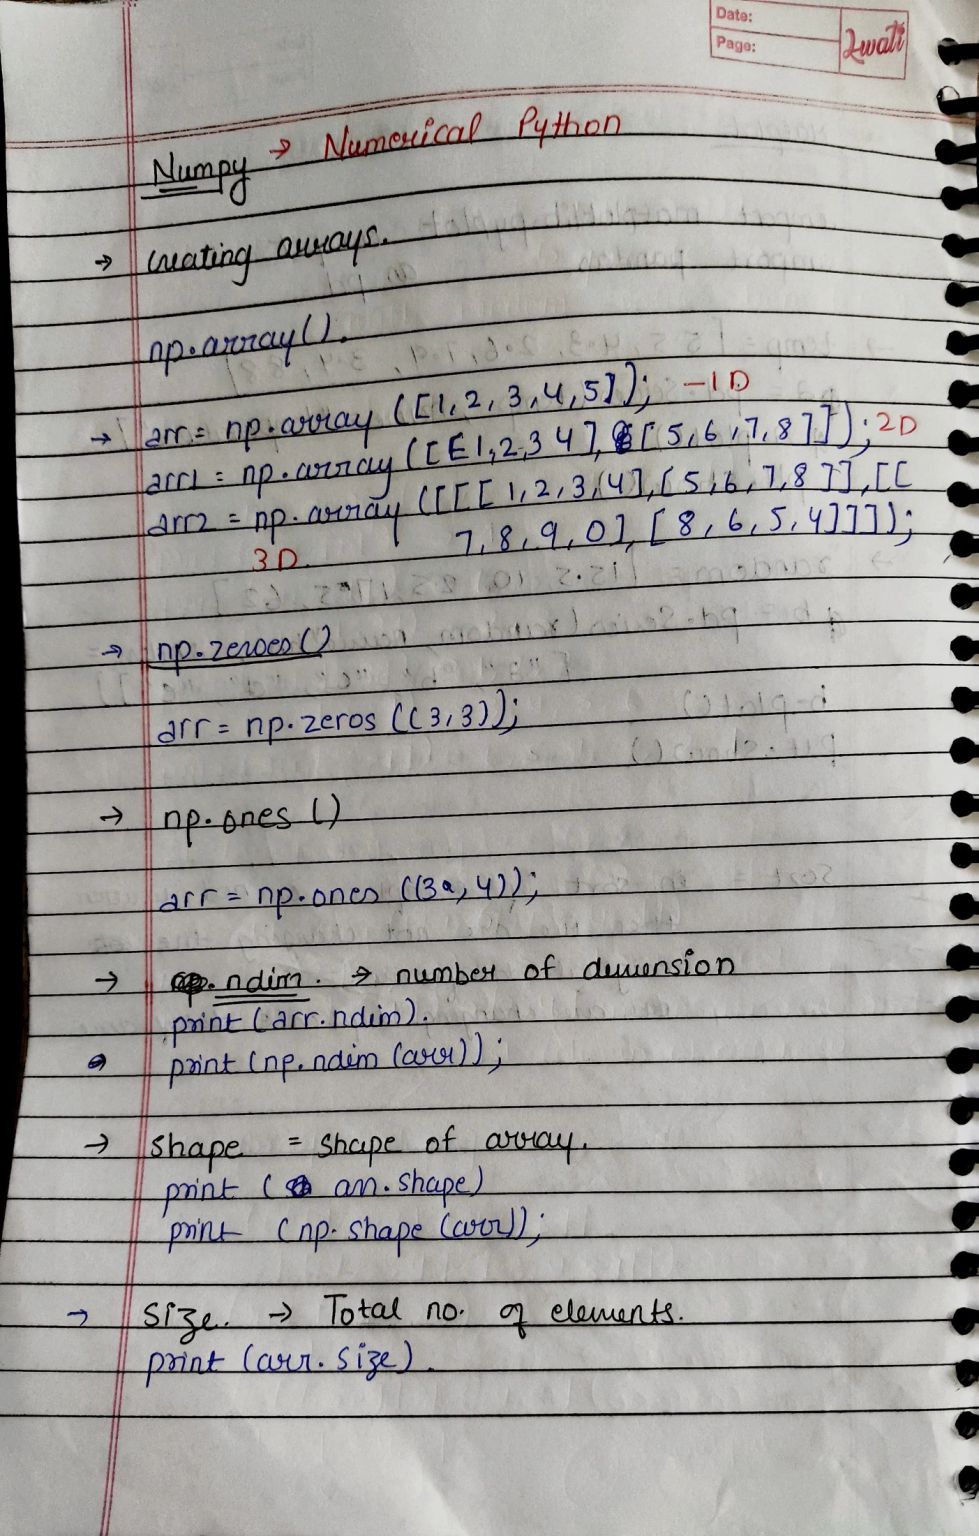 Date:
Page:
Numpy → Numerical Python
→ creating arrays.
np.array().
→ arr = np.array ([1,2,3,4,5]); - 1D
arr1 = np.array ([[1,2,3 4], [5,6,7,8]]); 2D
arr2 = np.array ([[[1,2,3,4],[5,6,7,8]],[[
7,8,9,0],[8,6,5,4]]]);
3D.
→ np.zeroes()
arr = np.zeros ((3,3));
→ np.ones ()
arr = np.ones ((3,4));
→ ndim. → number of dimension
print (arr.ndim).
print (np.ndim (arr));
→ shape = shape of array.
print (arr.shape)
print (np.shape (arr));
→ size. → Total no. of elements.
print (arr.size).